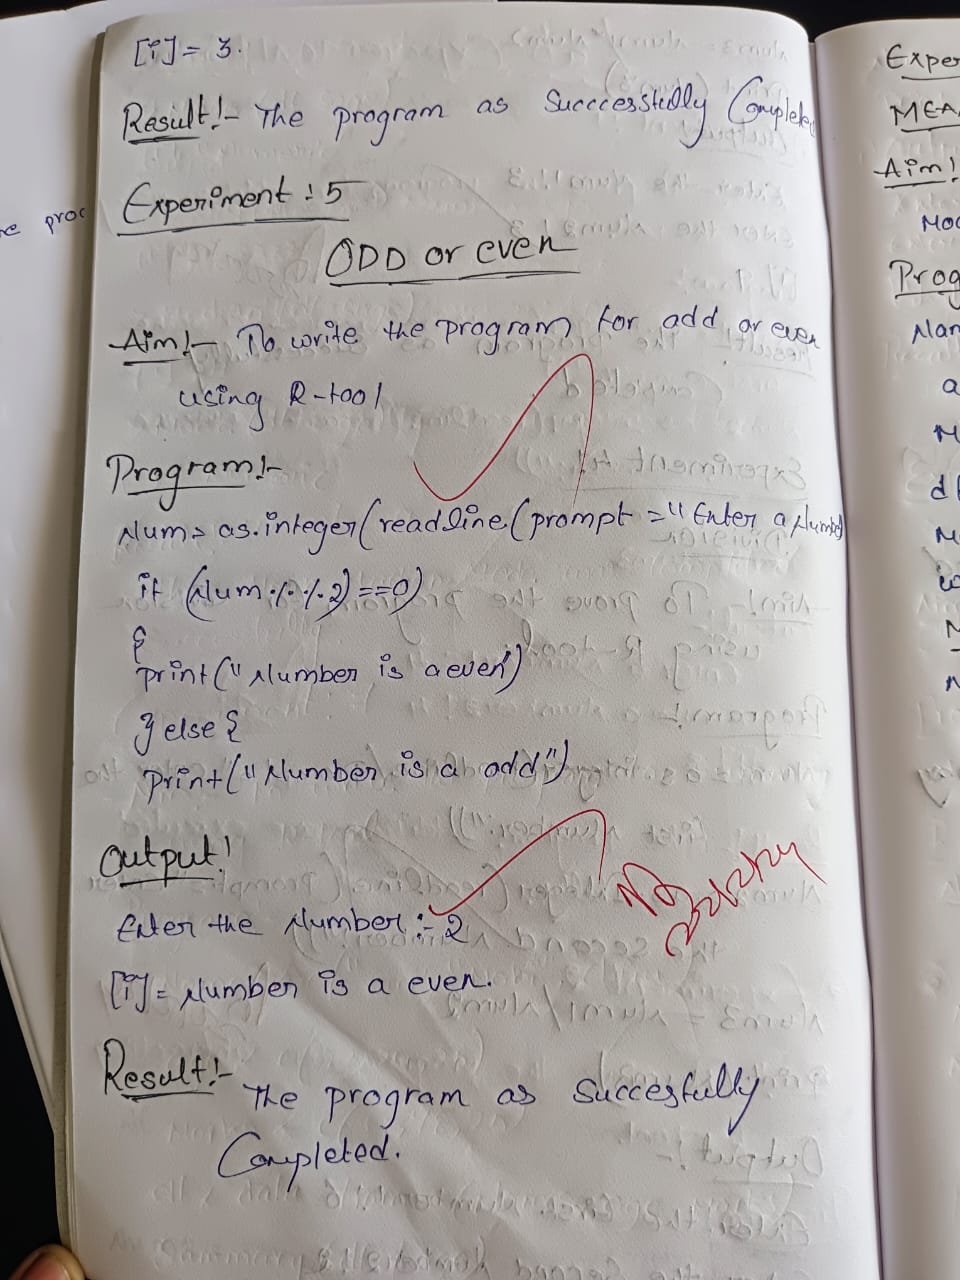 [i] = 3.
Result!- The program as Succcessfully Complete
Experiment : 5
ODD or even
Aim!- To write the program for add or even
using R-tool
Program!-
Num= as.integer(readline(prompt ="Enter a Number
if (Num%%2)==0)
{
print("Number is a even")
} else {
print("Number is a odd")
Output!
Enter the Number :- 2
[i] = Number is a even.
Result!-
The program as Succesfully
Completed.
re proc
Exper
MEA
Aim!
Prog
a
M